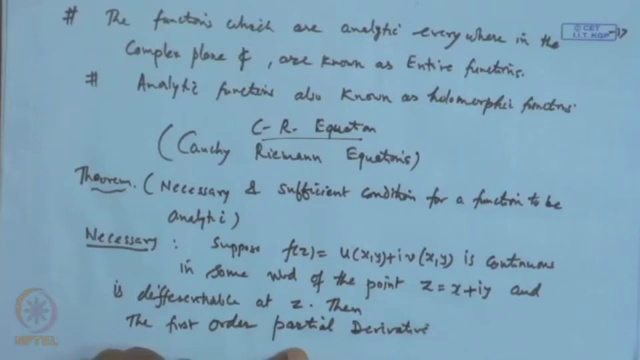 # The functions which are analytic everywhere in the
Complex plane ₵, are known as Entire functions.
# Analytic functions also known as holomorphic functions
C-R. Equation
(Cauchy Riemann Equations)
Theorem. (Necessary & sufficient condition for a function to be
analytic)
Necessary : Suppose f(z) = u(x,y)+iv(x,y) is continuous
in some nbd of the point z = x+iy and
is differentiable at z. Then
The first order partial Derivative
© CET
I.I.T. KGP
NPTEL